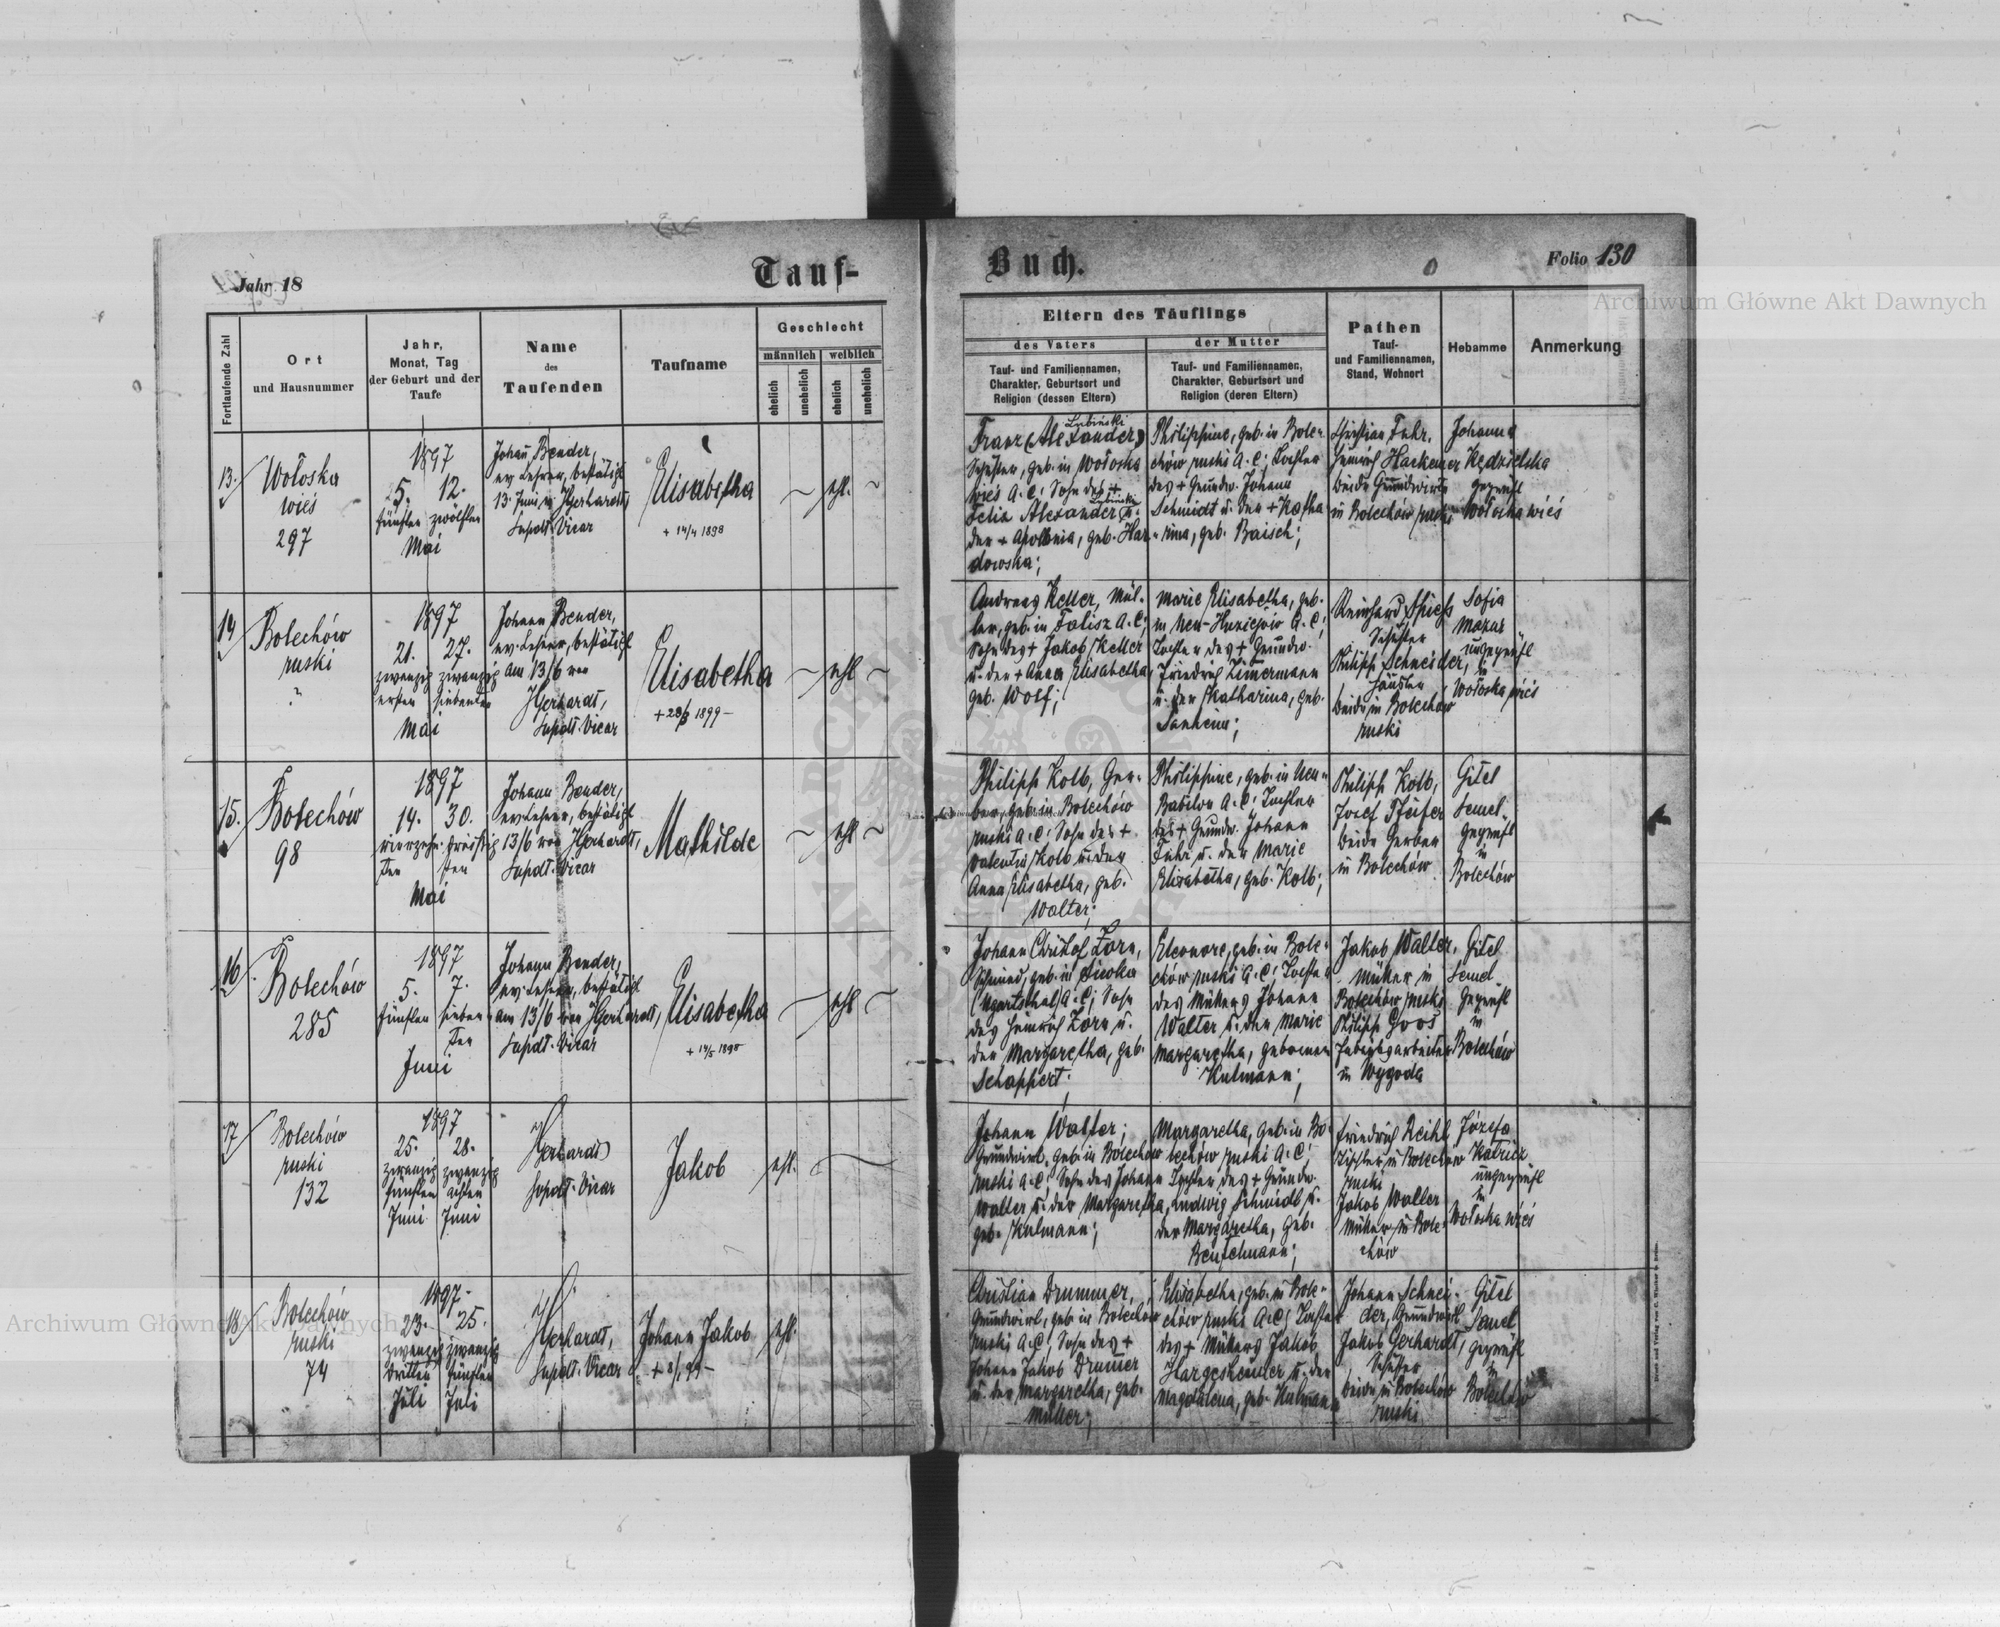 Jahr 18
Tauf-
Buch.
Folio 130
Archiwum Główne Akt Dawnych
Fortlaufende Zahl
Ort
und Hausnummer
Jahr,
Monat, Tag
der Geburt und der
Taufe
Name
des
Taufenden
Taufname
Geschlecht
männlich weiblich
ehelich
unehelich
ehelich
unehelich
Eltern des Täuflings
des Vaters
der Mutter
Tauf- und Familiennamen,
Charakter, Geburtsort und
Religion (dessen Eltern)
Tauf- und Familiennamen,
Charakter, Geburtsort und
Religion (deren Eltern)
Pathen
Tauf-
und Familiennamen,
Stand, Wohnort
Hebamme
Anmerkung
13.
Wołoska
wieś
297
1897
5. 12.
fünften zwölften
Mai
Johann Bender,
ev. Lehrer, bestätigt
13. Juni v. JGerhardt,
Supdt. Vicar
Elisabetha
+ 14/4 1898
ehl.
Lubinski
Franz (Alexander)
Schuster, geb. in Wołoska
wieś A. C; Sohn des +
Lubinski
Felix Alexander u.
der + Apollonia, geb. Har-
dowska;
Philippine, geb. in Bole-
chów ruski A. C; Tochter
des + Grundw. Johann
Schmidt u. der + Katha-
rina, geb. Baisch;
Christian Fuhr,
Heinrich Hackemer
beide Grundwirte
in Bolechów ruski
Johanna
Kędzielska
geprüft
Wołoska wieś
14
Bolechów
ruski
?
1897
21. 27.
zwanzig zwanzig
ersten siebenten
Mai
Johann Bender,
ev. Lehrer, bestätigt
am 13/6 von
JGerhardt,
Supdt. Vicar
Elisabetha
+ 28/3 1899 -
ehl
Andreas Keller, Mül-
ler, geb. in Falisz A. C;
Sohn des + Jakob Keller
u. der + Anna Elisabetha,
geb. Wolf;
Marie Elisabetha, geb.
in Neu- A. C;
Tochter des + Grundw.
Friedrich Zimermann
u. der Katharina, geb.
Reinhard Spiess
Schuster
Philipp Schneider,
Häusler
beide in Bolechów
ruski
Sofia
Mazur
ungeprüft
in
Wołoska wieś
15.
Bolechów
98
1897
14. 30.
vierzehn- dreißig
ten sten
Mai
Johann Bender,
ev. Lehrer, bestätigt
13/6 von JGerhardt,
Supdt. Vicar
Mathilde
ehl
Philipp Kolb, Ger-
ber, geb. in Bolechów
ruski A. C; Sohn des +
Valentin Kolb u. der
Anna Elisabetha, geb.
Walter;
Philippine, geb. in Neu-
Babilon A. C; Tochter
des + Grundw. Johann
Fuhr u. der Marie
Elisabetha, geb. Kolb;
Philipp Kolb,
Josef Pfeifer
beide Gerber
in Bolechów
Gitel
Semel
geprüft
in
Bolechów
16.
Bolechów
285
1897
5. 7.
fünften sieben-
ten
Juni
Johann Bender,
ev. Lehrer, bestätigt
am 13/6 von JGerhardt,
Supdt. Vicar
Elisabetha
ehl
Johann Christof Zorn,
Schmied, geb. in
(Ugartsthal) A. C; Sohn
des Heinrich Zorn u.
der Margaretha, geb.
Schappert;
Eleonore, geb. in Bole-
chów ruski A. C; Tochter
des Müllers Johann
Walter u. der Marie
Margaretha, geborenen
Kulmann;
Jakob Walter,
Müller in
Bolechów ruski
Philipp Goos
Fabriksarbeiter
in Wygoda
Gitel
Semel
geprüft
in
Bolechów
17
Bolechów
ruski
132
1897
25. 28.
zwanzig zwanzig
fünften achten
Juni Juni
JGerhardt
Supdt. Vicar
Jakob
ehl.
Johann Walter;
Grundwirt, geb. in Bolechów
ruski A. C; Sohn des Johann
Walter u. der Margaretha,
geb. Kulmann;
Margaretha, geb. in Bo-
lechów ruski A. C;
Tochter des + Grundw.
Ludwig Schmidt u.
der Margaretha, geb.
Beutelmann;
Friedrich Reihl
Tischler in Bolechów
ruski
Jakob Walter
Müller in Bole-
chów
Józefa
ungeprüft
in
Wołoska wieś
18
Bolechów
ruski
74
1897.
23. 25.
zwanzig zwanzig
dritten fünften
Juli Juli
JGerhardt,
Supdt. Vicar
Johann Jakob
ehl.
Christian Drummer,
Grundwirt, geb. in Bolechów
ruski A. C; Sohn des +
Johann Jakob Drumer
u. der Margaretha, geb.
Müller;
Elisabetha, geb. in Bole-
chów ruski A. C; Tochter
des + Müllers Jakob
Hargesheimer u. der
Magdalena, geb. Kulmann
Johann Schnei-
der, Grundwirt
Jakob Gerhardt,
Schuster
beide in Bolechów
ruski
Gitel
Semel
geprüft
in
Bolechów
Archiwum Główne Akt Dawnych